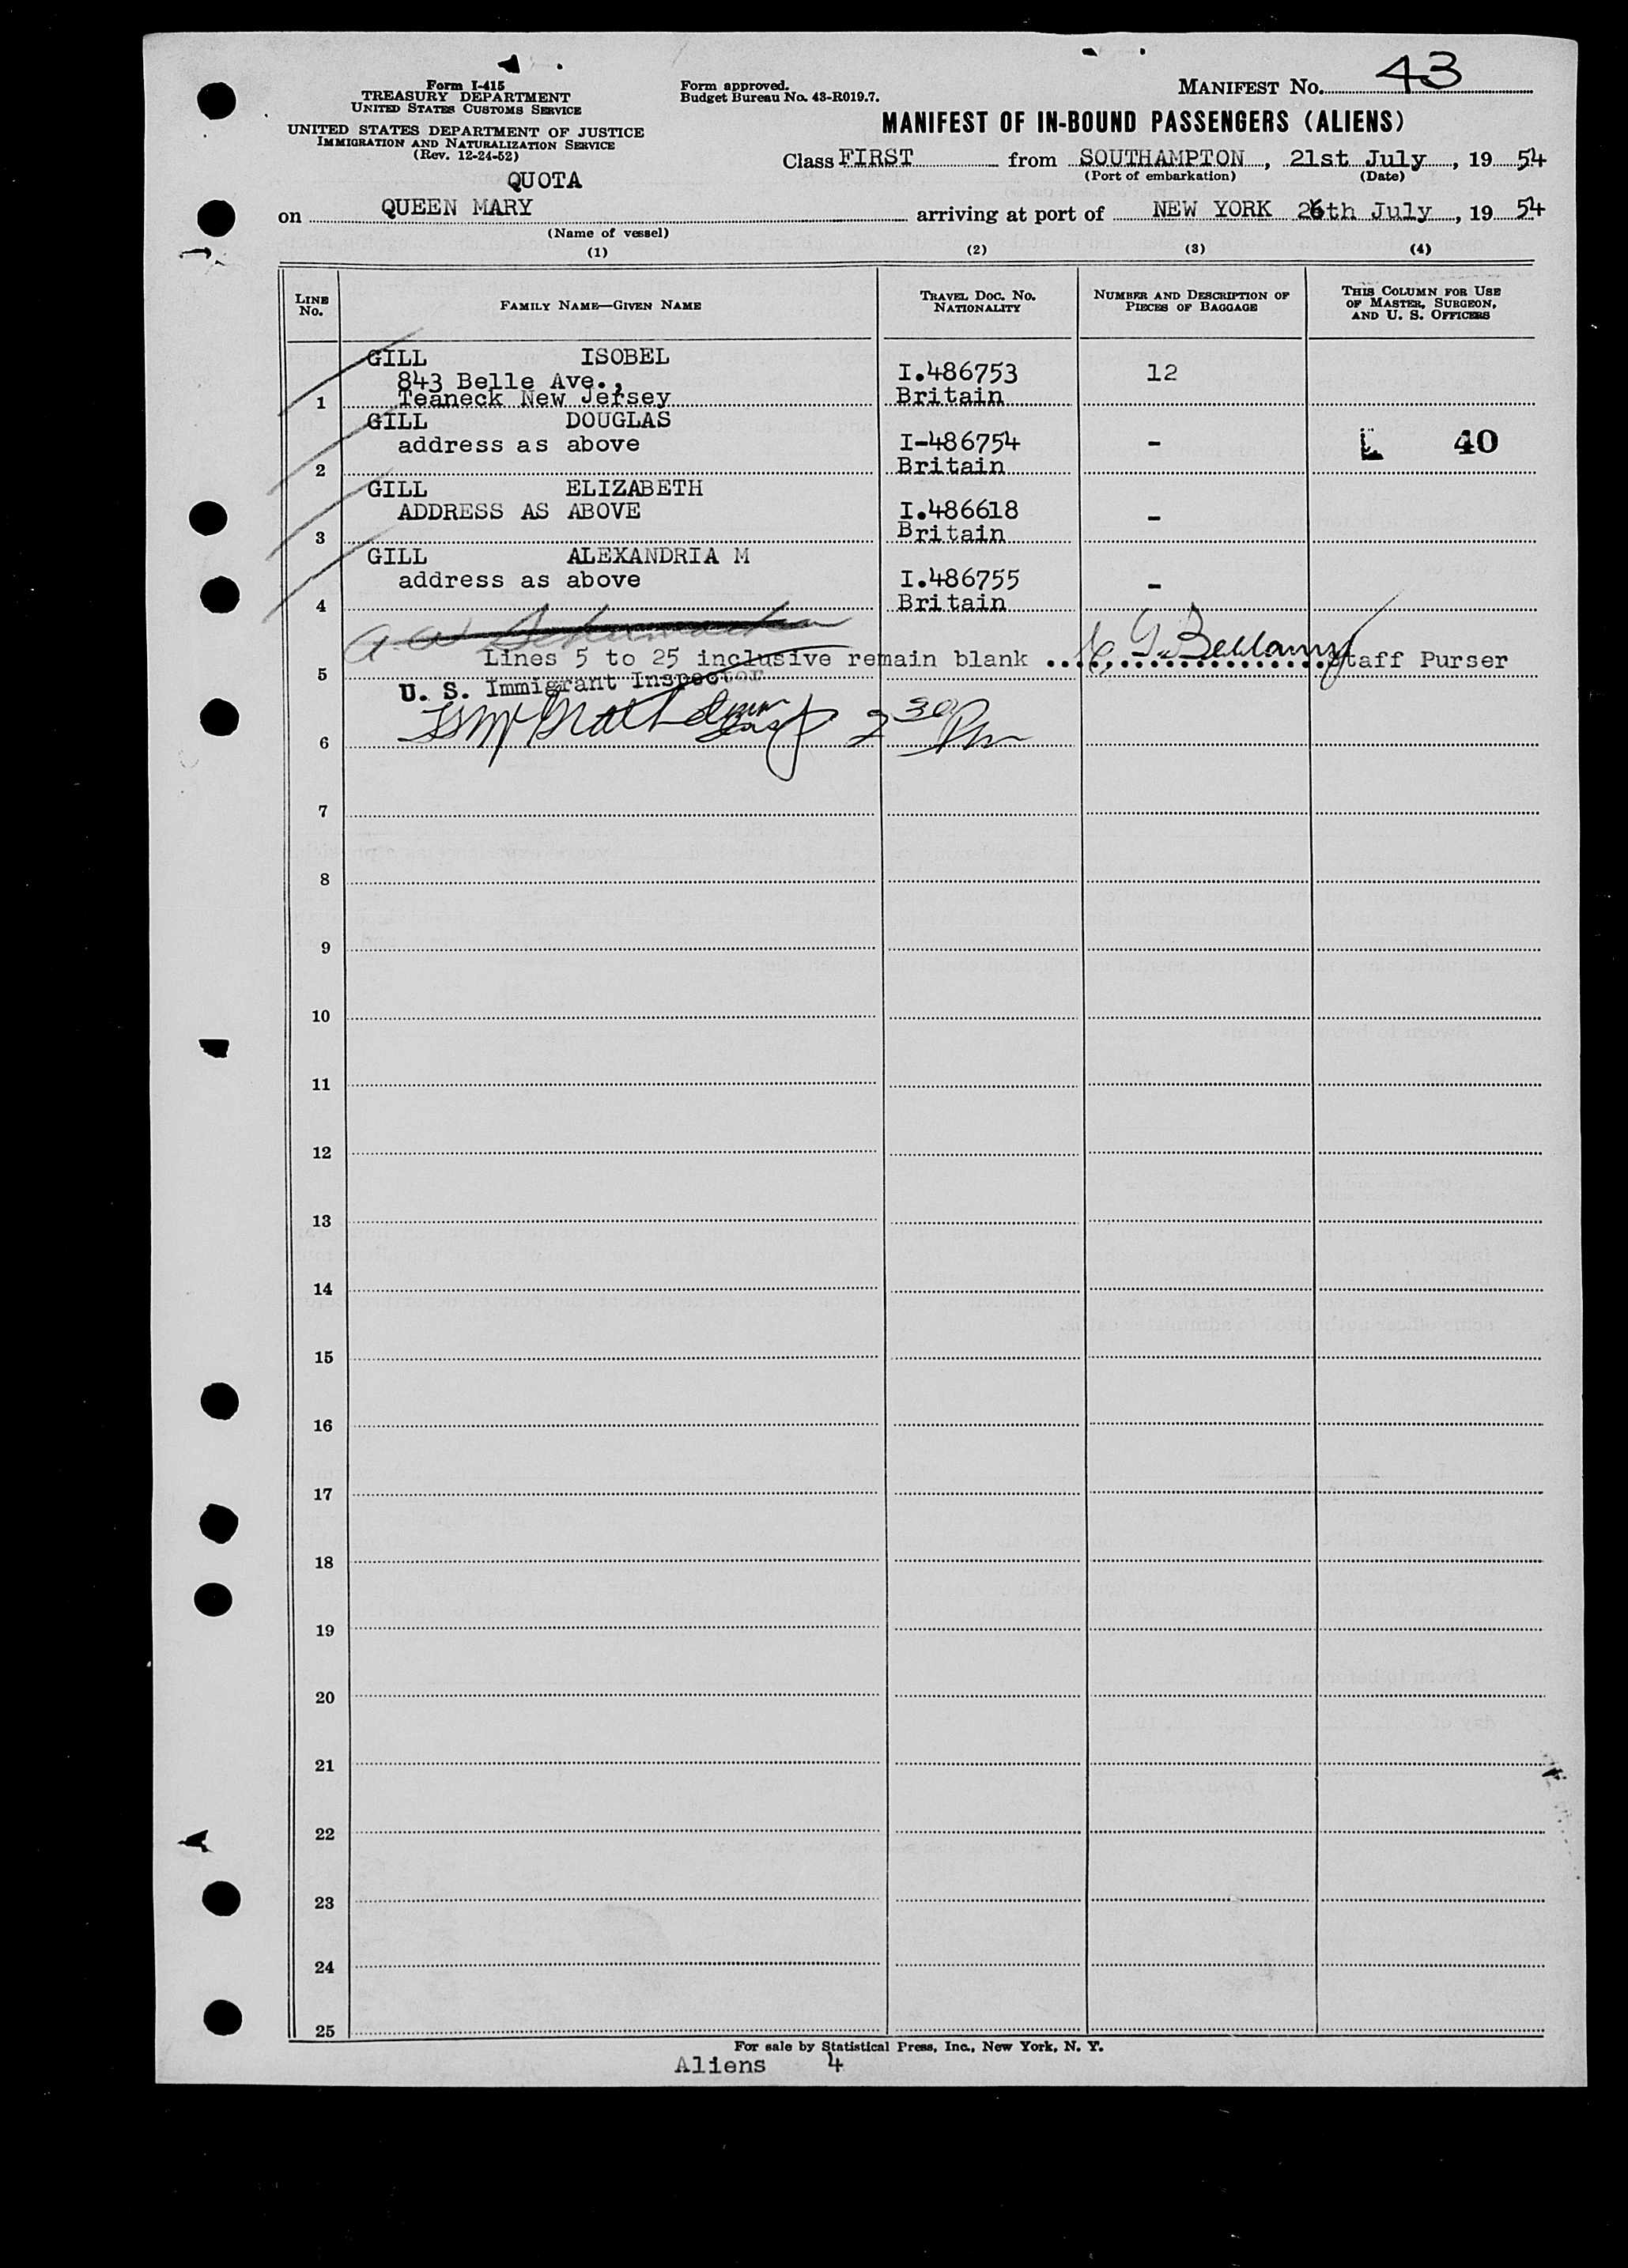 Form I-415
TREASURY DEPARTMENT
UNITED STATES CUSTOMS SERVICE
UNITED STATES DEPARTMENT OF JUSTICE
IMMIGRATION AND NATURALIZATION SERVICE
(Rev. 12-24-52)
Form approved.
Budget Bureau No. 43-R019.7.
MANIFEST No. 43
MANIFEST OF IN-BOUND PASSENGERS (ALIENS)
Class FIRST from SOUTHAMPTON, 21st July, 19 54
(Port of embarkation) (Date)
QUOTA
on QUEEN MARY arriving at port of NEW YORK 26th July, 19 54
(Name of vessel)
(1) (2) (3) (4)
LINE No. FAMILY NAME—GIVEN NAME TRAVEL DOC. NO. NATIONALITY NUMBER AND DESCRIPTION OF PIECES OF BAGGAGE THIS COLUMN FOR USE OF MASTER, SURGEON, AND U. S. OFFICERS
GILL ISOBEL
843 Belle Ave., I.486753 12
1 Teaneck New Jersey Britain
GILL DOUGLAS
address as above I-486754 - 40
2 Britain
GILL ELIZABETH
ADDRESS AS ABOVE I.486618 -
3 Britain
GILL ALEXANDRIA M
address as above I.486755 -
4 Britain
Lines 5 to 25 inclusive remain blank G. Bellamy Staff Purser
5
U. S. Immigrant Inspector
6 2 30 Pm
7
8
9
10
11
12
13
14
15
16
17
18
19
20
21
22
23
24
25
For sale by Statistical Press, Inc., New York, N. Y.
Aliens 4